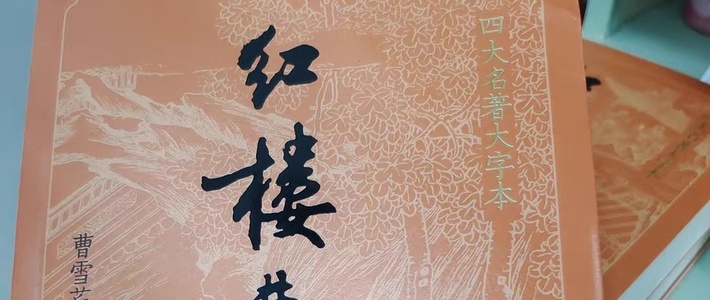 四大名著大字本
红楼
曹雪